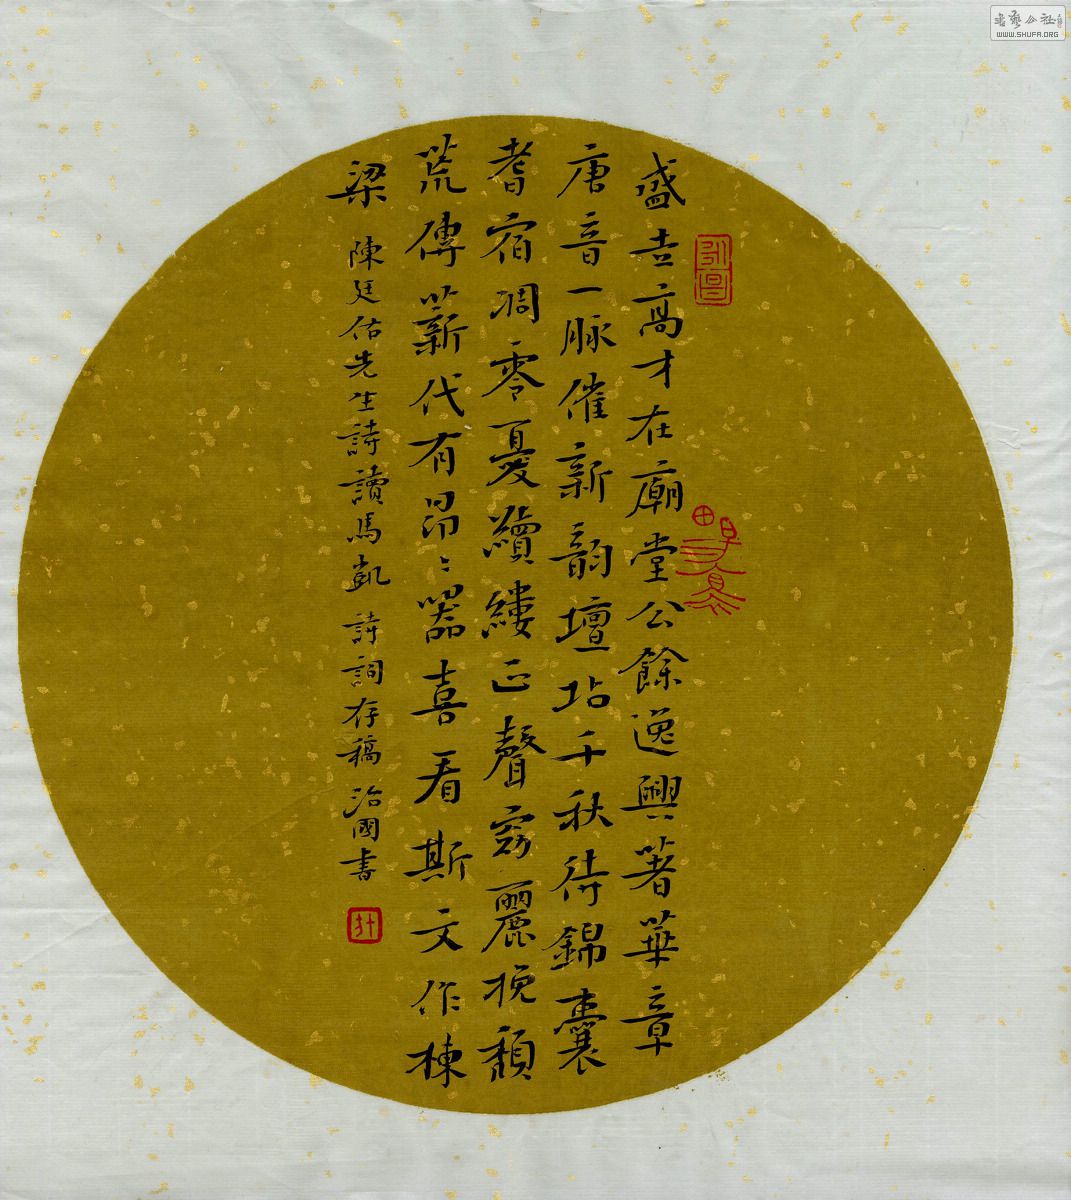 盛世高才在廟堂公餘逸興著華章
唐音一脈催新韵壇坫千秋待錦囊
耆宿凋零憂續縷正聲窈麗挽頹
荒傳薪代有昂〻器喜看斯文作棟
梁 陳廷佑先生詩讀馬凱詩詞存稿 治國書
书艺公社
WWW.SHUFA.ORG